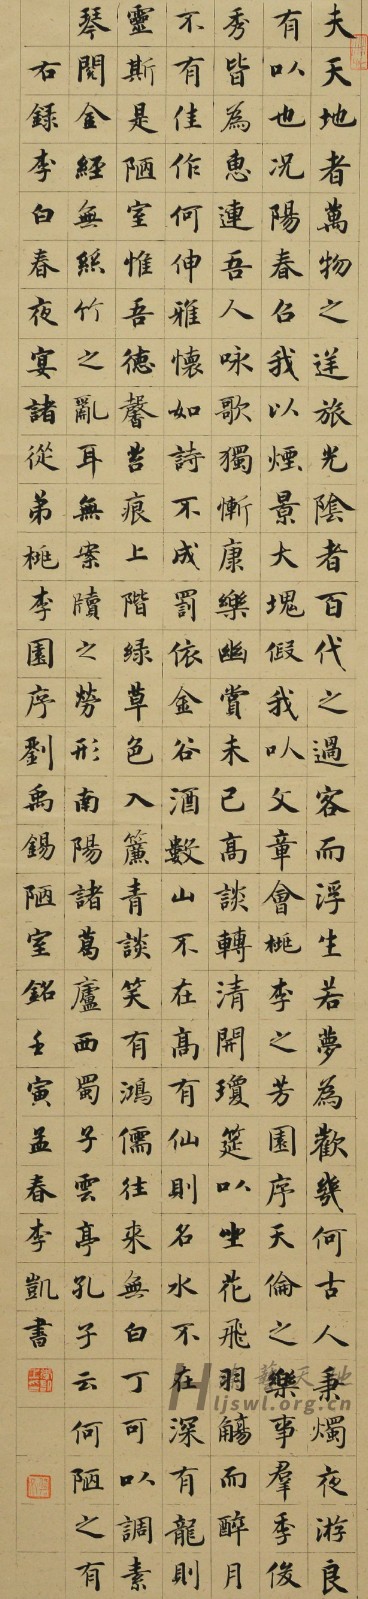 夫天地者萬物之逆旅光陰者百代之過客而浮生若夢為歡幾何古人秉燭夜游良
有以也况陽春召我以煙景大塊假我以文章會桃李之芳園序天倫之樂事羣季俊
秀皆為惠連吾人咏歌獨慚康樂幽賞未已高談轉清開瓊筵以坐花飛羽觴而醉月
不有佳作何伸雅懷如詩不成罰依金谷酒數山不在高有仙則名水不在深有龍則
靈斯是陋室惟吾德馨苔痕上階緑草色入簾青談笑有鴻儒往来無白丁可以調素
琴閱金經無絲竹之亂耳無案牘之勞形南陽諸葛廬西蜀子雲亭孔子云何陋之有
右録李白春夜宴諸從弟桃李園序劉禹錫陋室銘壬寅孟春李凱書
Hljswl.org.cn